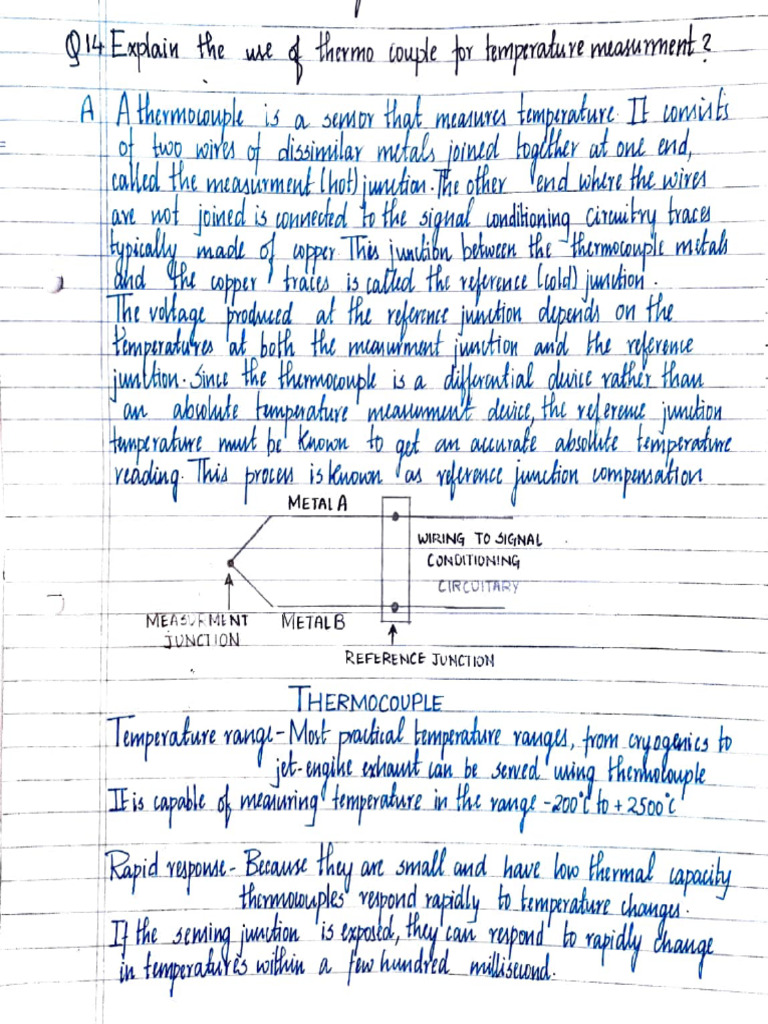 Q14 Explain the use of thermo couple for temperature measurment?
A A thermocouple is a sensor that measures temperature. It consists
of two wires of dissimilar metals joined together at one end,
called the measurment (hot) junction. The other end where the wires
are not joined is connected to the signal conditioning circuitry traces
typically made of copper. This junction between the thermocouple metals
and the copper traces is called the reference (cold) junction.
The voltage produced at the reference junction depends on the
temperatures at both the measurment junction and the reference
junction. Since the thermocouple is a differential device rather than
an absolute temperature measurment device, the reference junction
temperature must be known to get an accurate absolute temperature
reading. This process is known as reference junction compensation
METAL A
WIRING TO SIGNAL
CONDITIONING
CIRCUITARY
MEASURMENT
JUNCTION
METAL B
REFERENCE JUNCTION
THERMOCOUPLE
Temperature range - Most practical temperature ranges, from cryogenics to
jet-engine exhaust can be served using thermocouple
It is capable of measuring temperature in the range -200°C to +2500°C
Rapid response - Because they are small and have low thermal capacity
thermocouples respond rapidly to temperature changes.
If the sensing junction is exposed, they can respond to rapidly change
in temperatures within a few hundred millisecond.